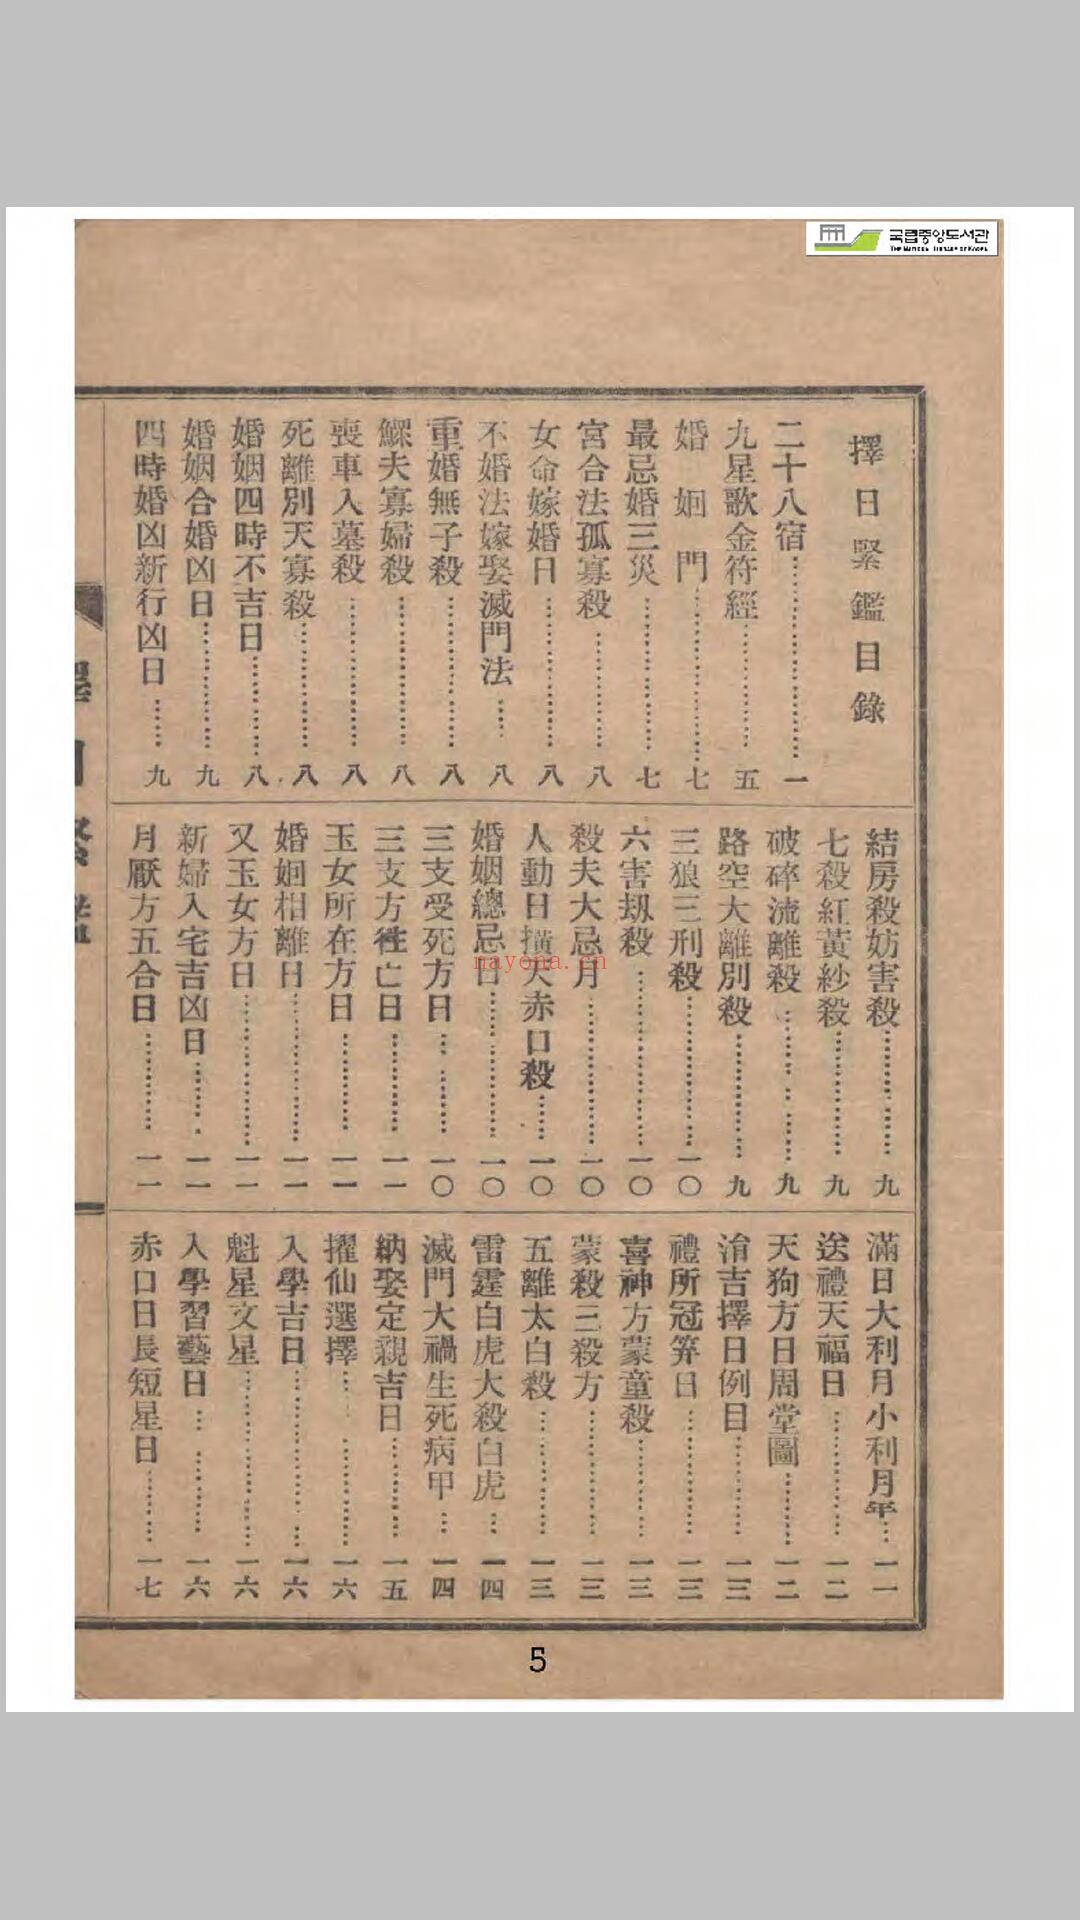 국립중앙도서관
THE NATIONAL LIBRARY OF KOREA
擇日緊鑑目錄
二十八宿……一
九星歌金符經……五
婚姻門……七
最忌婚三災……七
宮合法孤寡殺……八
女命嫁婚日……八
不婚法嫁娶滅門法……八
重婚無子殺……八
鰥夫寡婦殺……八
喪車入墓殺……八
死離別天寡殺……八
婚姻四時不吉日……八
婚姻合婚凶日……九
四時婚凶新行凶日……九
結房殺妨害殺……九
七殺紅黃紗殺……九
破碎流離殺……九
路空大離別殺……九
三狼三刑殺……一〇
六害刼殺……一〇
殺夫大忌月……一〇
人動日攅天赤口殺……一〇
婚姻總忌日……一〇
三支受死方日……一〇
三支方徃亡日……一一
玉女所在方日……一一
婚姻相離日……一一
又玉女方日……一一
新婦入宅吉凶日……一一
月厭方五合日……一一
滿日大利月小利月年…一一
送禮天福日……一二
天狗方日周堂圖……一二
㳙吉擇日例目……一三
禮所冠笄日……一三
喜神方蒙童殺……一三
蒙殺三殺方……一三
五離太白殺……一三
雷霆白虎大殺白虎…一四
滅門大禍生死病甲…一四
納娶定親吉日……一五
擢仙選擇……一六
入學吉日……一六
魁星文星……一六
入學習藝日……一六
赤口日長短星日……一七
nayona.cn
5